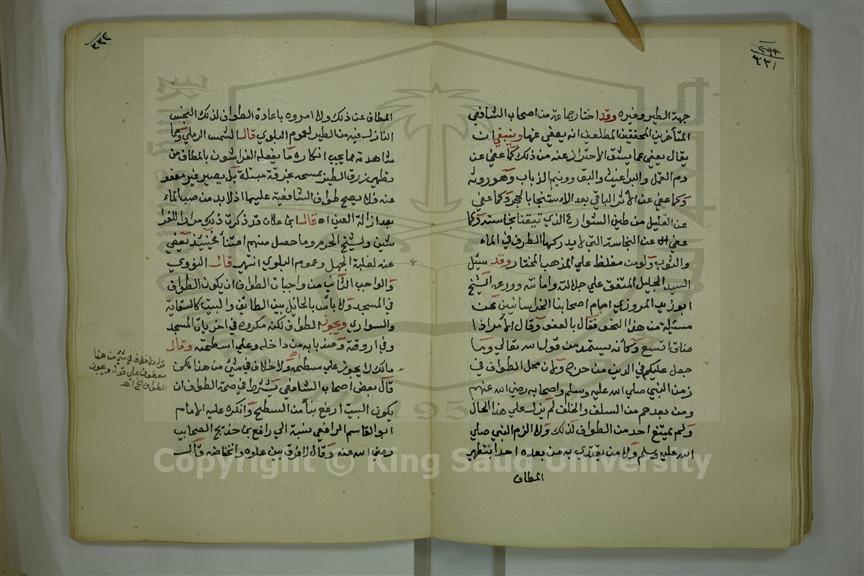 جهة الطير وغيره وقد اختار جماعة من اصحاب الشافعي
المتأخرين المحققين المطلعين انه يعفى عنها وينبغي ان
يقال يعفى عما يشق الاحتراز عنه من ذلك كما عفي عن
دم القمل والبراغيث والبق وونيم الذباب وهو روثه
وكما عفي عن الاثر الباقي بعد الاستنجاء بالحجر وكما عفي
عن القليل من طين الشوارع الذي تيقنا نجاسته وكما
عفي عن النجاسة التي لا يدركها الطرف في الماء
والثوب ولو من مغلظ على المذهب المختار وقد سئل
السيد الجليل المتفق على جلالته وامامته وورعه الشيخ
ابو زيد المروزي امام اصحابنا الخراسانيين عن
مسئلة من هذا النحو فقال بالعفو وقال الامر اذا
ضاق اتسع وكأنه يستمد من قول الله تعالى وما
جعل عليكم في الدين من حرج ولان محل الطواف في
زمن النبي صلى الله عليه وسلم واصحابه رضي الله عنهم
ومن بعدهم من السلف والخلف لم يزل على هذا الحال
ولم يمتنع احد من الطواف لذلك ولا الزم النبي صلى
الله عليه وسلم ولا من يقتدى به من بعده احدا بتطهير
المطاف
المطاف عن ذلك ولا امروه باعادة الطواف لذلك النجس
النازل فيه من الطير لعموم البلوى قال الشمس الرملي ومما
شاهدته مما يجب انكاره ما يفعله الفراشون بالمطاف من
تطهير زرق الطيور بمسحه بخرقة مبتلة بل يصير غير معفو
عنه فلا يصح طواف الشافعية عليها اذ لا بد من صب الماء
بعد ازالة العين اه قال ابن علان وقد ذكرت ذلك مرارا للفرا
شين ولشيخ الحرم وما حصل منهم اعتناء فحينئذ يعفى
عنه لغلبة الجهل وعموم البلوى انتهى قال النووي
والواجب الثامن من واجبات الطواف ان يكون الطواف
في المسجد ولا بأس بالحائل بين الطائف والبيت كالسقاية
والسواري ويجوز الطواف لكنه مكروه في اخريات المسجد
وفي اروقته وعند بابه من داخله وعلى اسطحته وقال
مالك لا يجوز على سطحه ولا خلاف في شيء من هذا لكن
قال بعض اصحاب الشافعي يشترط في صحة الطواف ان
يكون البيت ارفع بناء من السطح وانكره عليه الامام
ابو القاسم الرافعي نسبة الى رافع بن خديج الصحابي
رضي الله عنه وقال لا فرق بين علوه وانخفاضه قال
قوله ولا خلاف في شيء من هذا
معطوف على قوله ويجوز
الطواف الخ اه
Copyright © King Saud University
1957